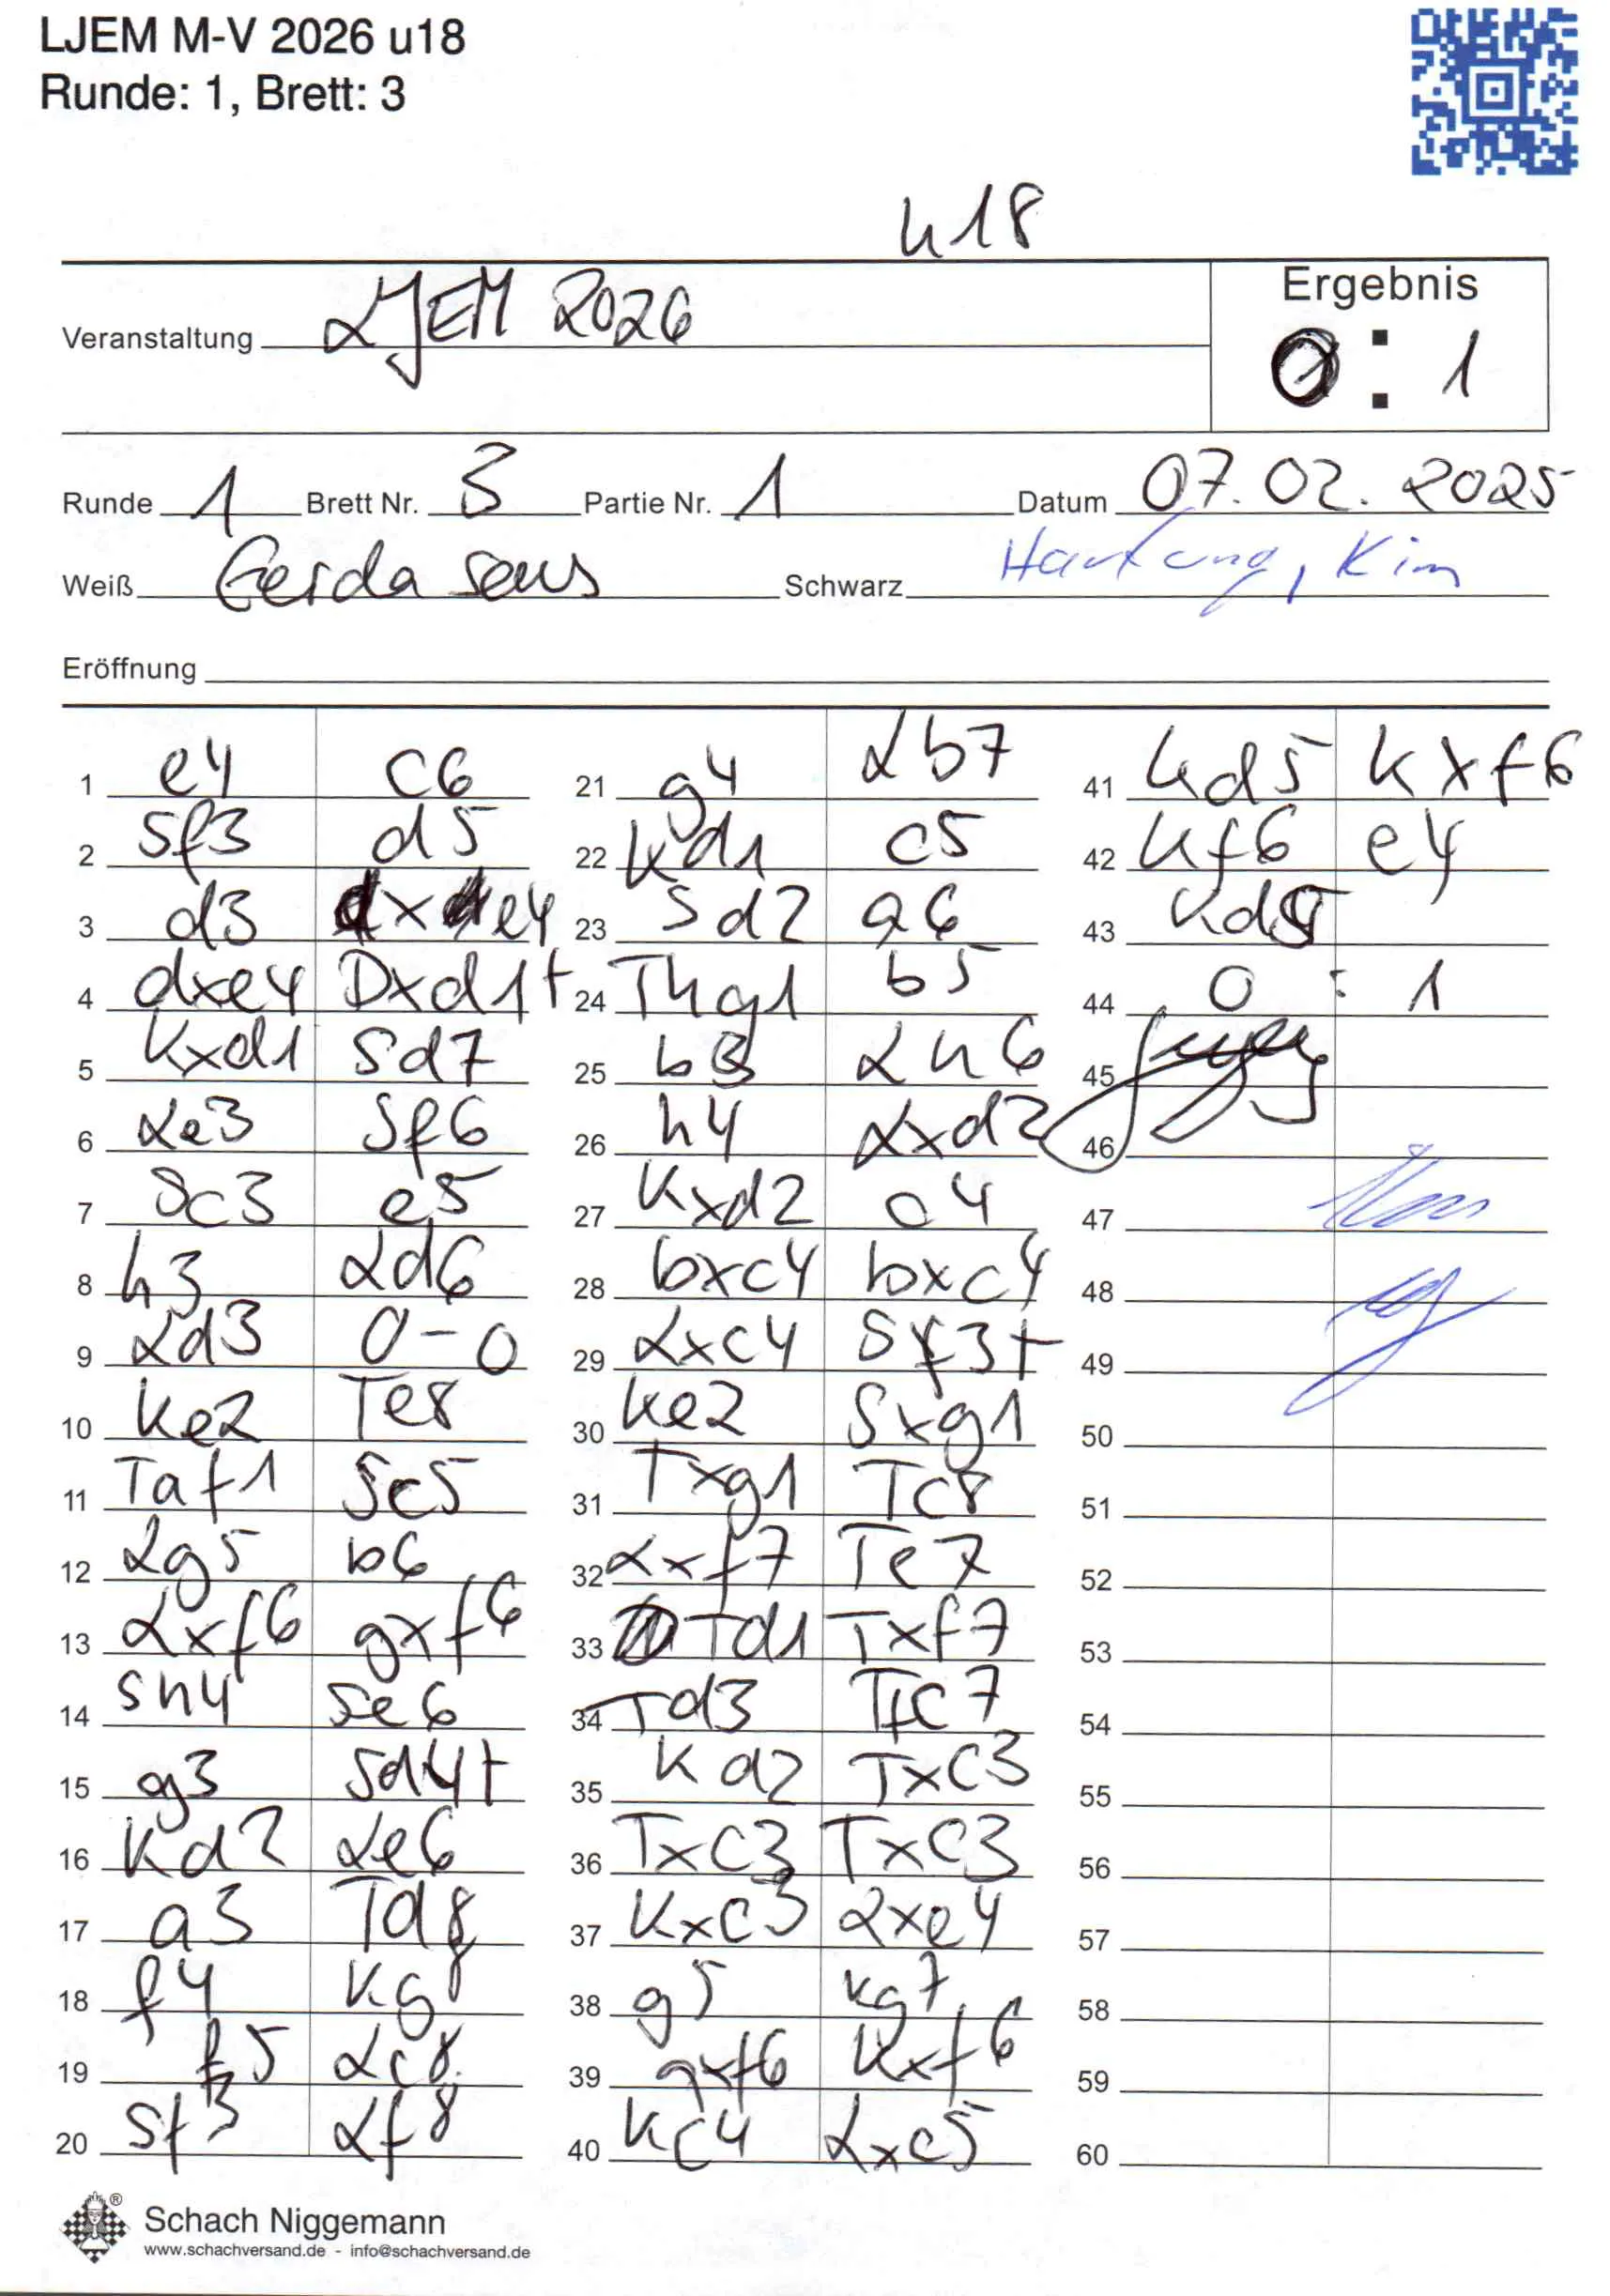 LJEM M-V 2026 u18
Runde: 1, Brett: 3
u18
Veranstaltung LJEM 2026
Ergebnis
0 : 1
Runde 1 Brett Nr. 3 Partie Nr. 1 Datum 07.02.2025
Weiß Gerda Sens Schwarz Hartung, Kim
Eröffnung
1 e4 c6
2 Sf3 d5
3 d3 dxe4
4 dxe4 Dxd1+
5 Kxd1 Sd7
6 Le3 Sf6
7 Sc3 e5
8 h3 Ld6
9 Ld3 0-0
10 Ke2 Te8
11 Taf1 Sc5
12 Lg5 b6
13 Lxf6 gxf6
14 Sh4 Se6
15 g3 Sd4+
16 Kd2 Le6
17 a3 Td8
18 f4 Kg8
19 f5 Lc8
20 Sf3 Lf8
21 g4 Lb7
22 Kd1 c5
23 Sd2 a6
24 Thg1 b5
25 b3 Lh6
26 h4 Lxd2
27 Kxd2 c4
28 bxc4 bxc4
29 Lxc4 Sf3+
30 Ke2 Sxg1
31 Txg1 Tc8
32 Lxf7 Te7
33 Td1 Txf7
34 Td3 Tfc7
35 Kd2 Txc3
36 Txc3 Txc3
37 Kxc3 Lxe4
38 g5 Kg7
39 gxf6 Kxf6
40 Kc4 Lxc5
41 Kd5 Kxf6
42 Kf6 e4
43 Kd5
44 0 : 1
45
46
47
48
49
50
51
52
53
54
55
56
57
58
59
60
Schach Niggemann
www.schachversand.de - info@schachversand.de